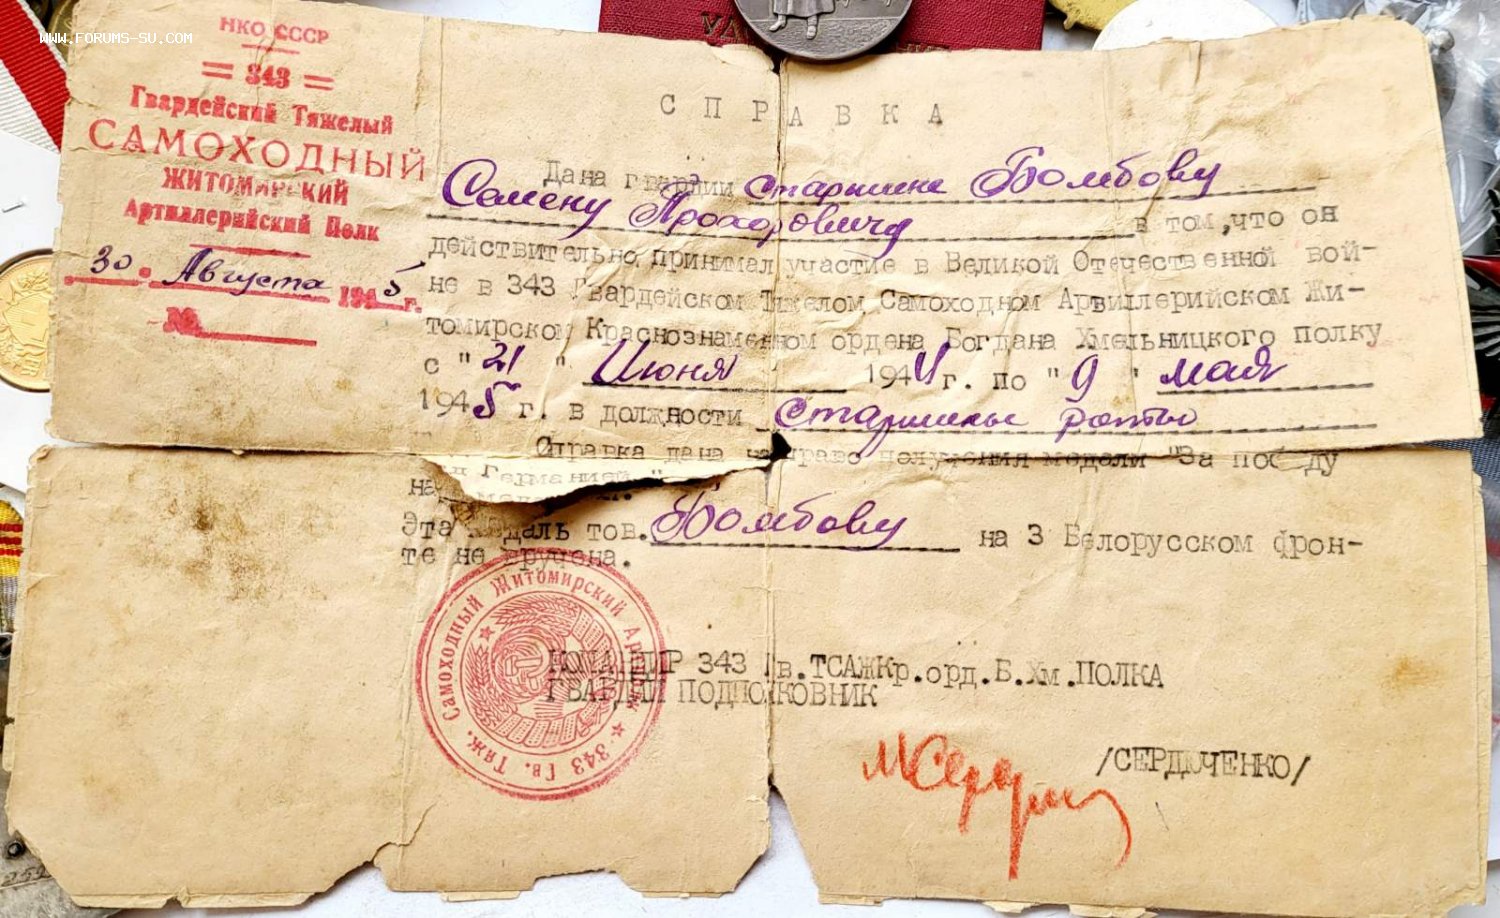 WWW.FORUMS-SU.COM
НКО СССР
= 343 =
Гвардейский Тяжелый
САМОХОДНЫЙ
ЖИТОМИРСКИЙ
Артиллерийский Полк
30. Августа 1945 г.
№
СПРАВКА
Дана гвардии старшине Бомбову
Семену Прохоровичу в том,что он
действительно принимал участие в Великой Отечественной вой-
не в 343 Гвардейском Тяжелом Самоходном Арвиллерийском Жи-
томирском Краснознаменном ордена Богдана Хмельницкого полку
с "21" Июня 1944 г. по "9" мая
1945 г. в должности Старшины роты
Справка дана на право получения медали "За победу
над Германией."
Эта медаль тов. Бомбову на 3 Белорусском фрон-
те не вручена.
КОМАНДИР 343 Гв.ТСАЖКр.орд.Б.Хм.ПОЛКА
ГВАРДИИ ПОДПОЛКОВНИК
/СЕРДЮЧЕНКО/
343 Гв. Тяж. Самоходный Житомирский Артил